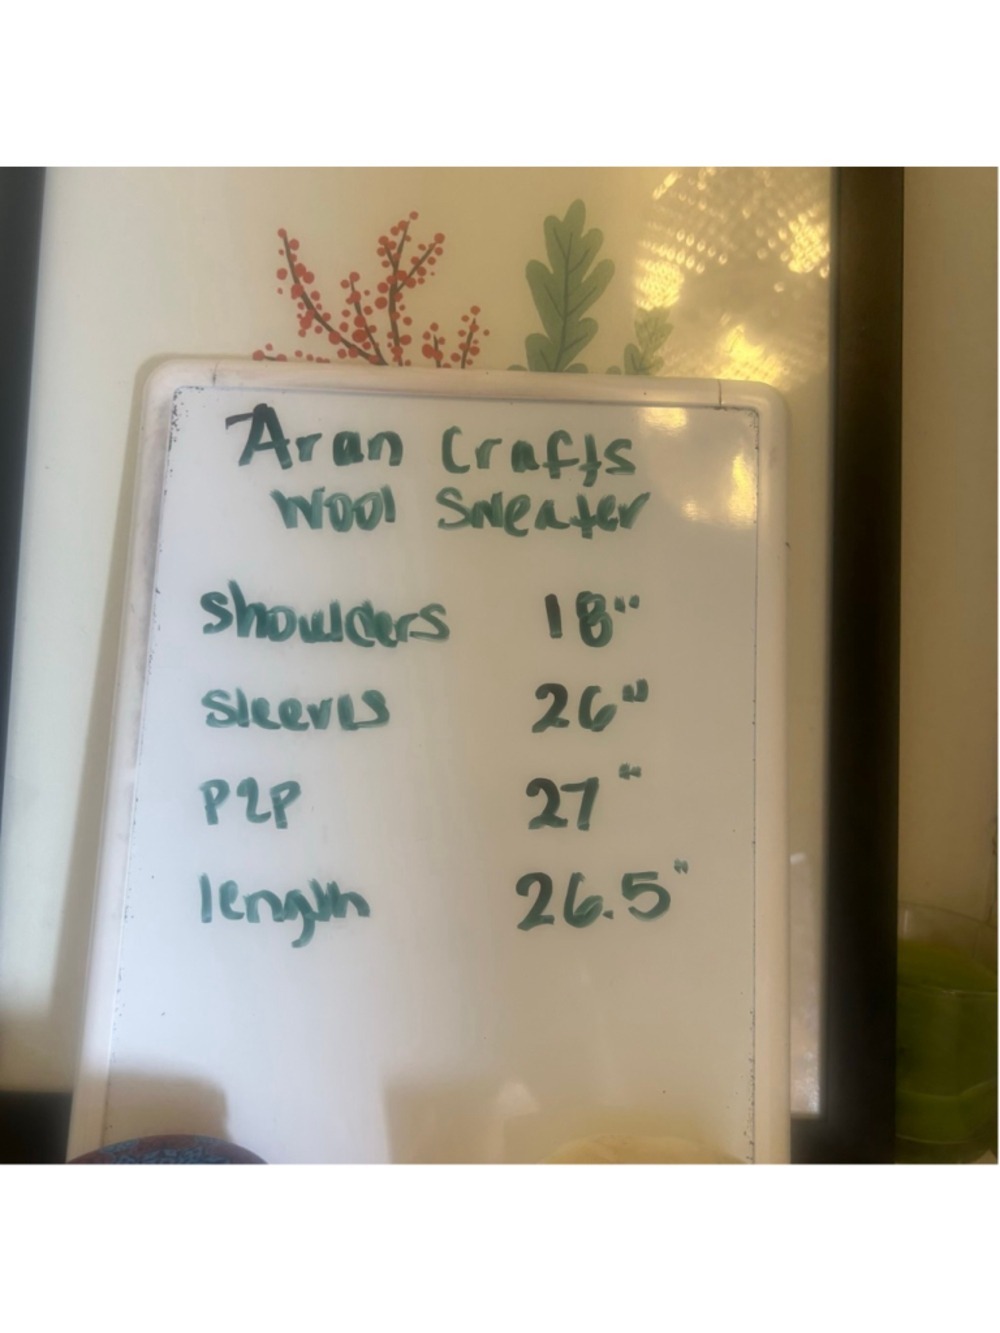 Aran Crafts
Wool Sweater
Shoulders 18"
Sleeves 26"
P2P 27"
length 26.5"